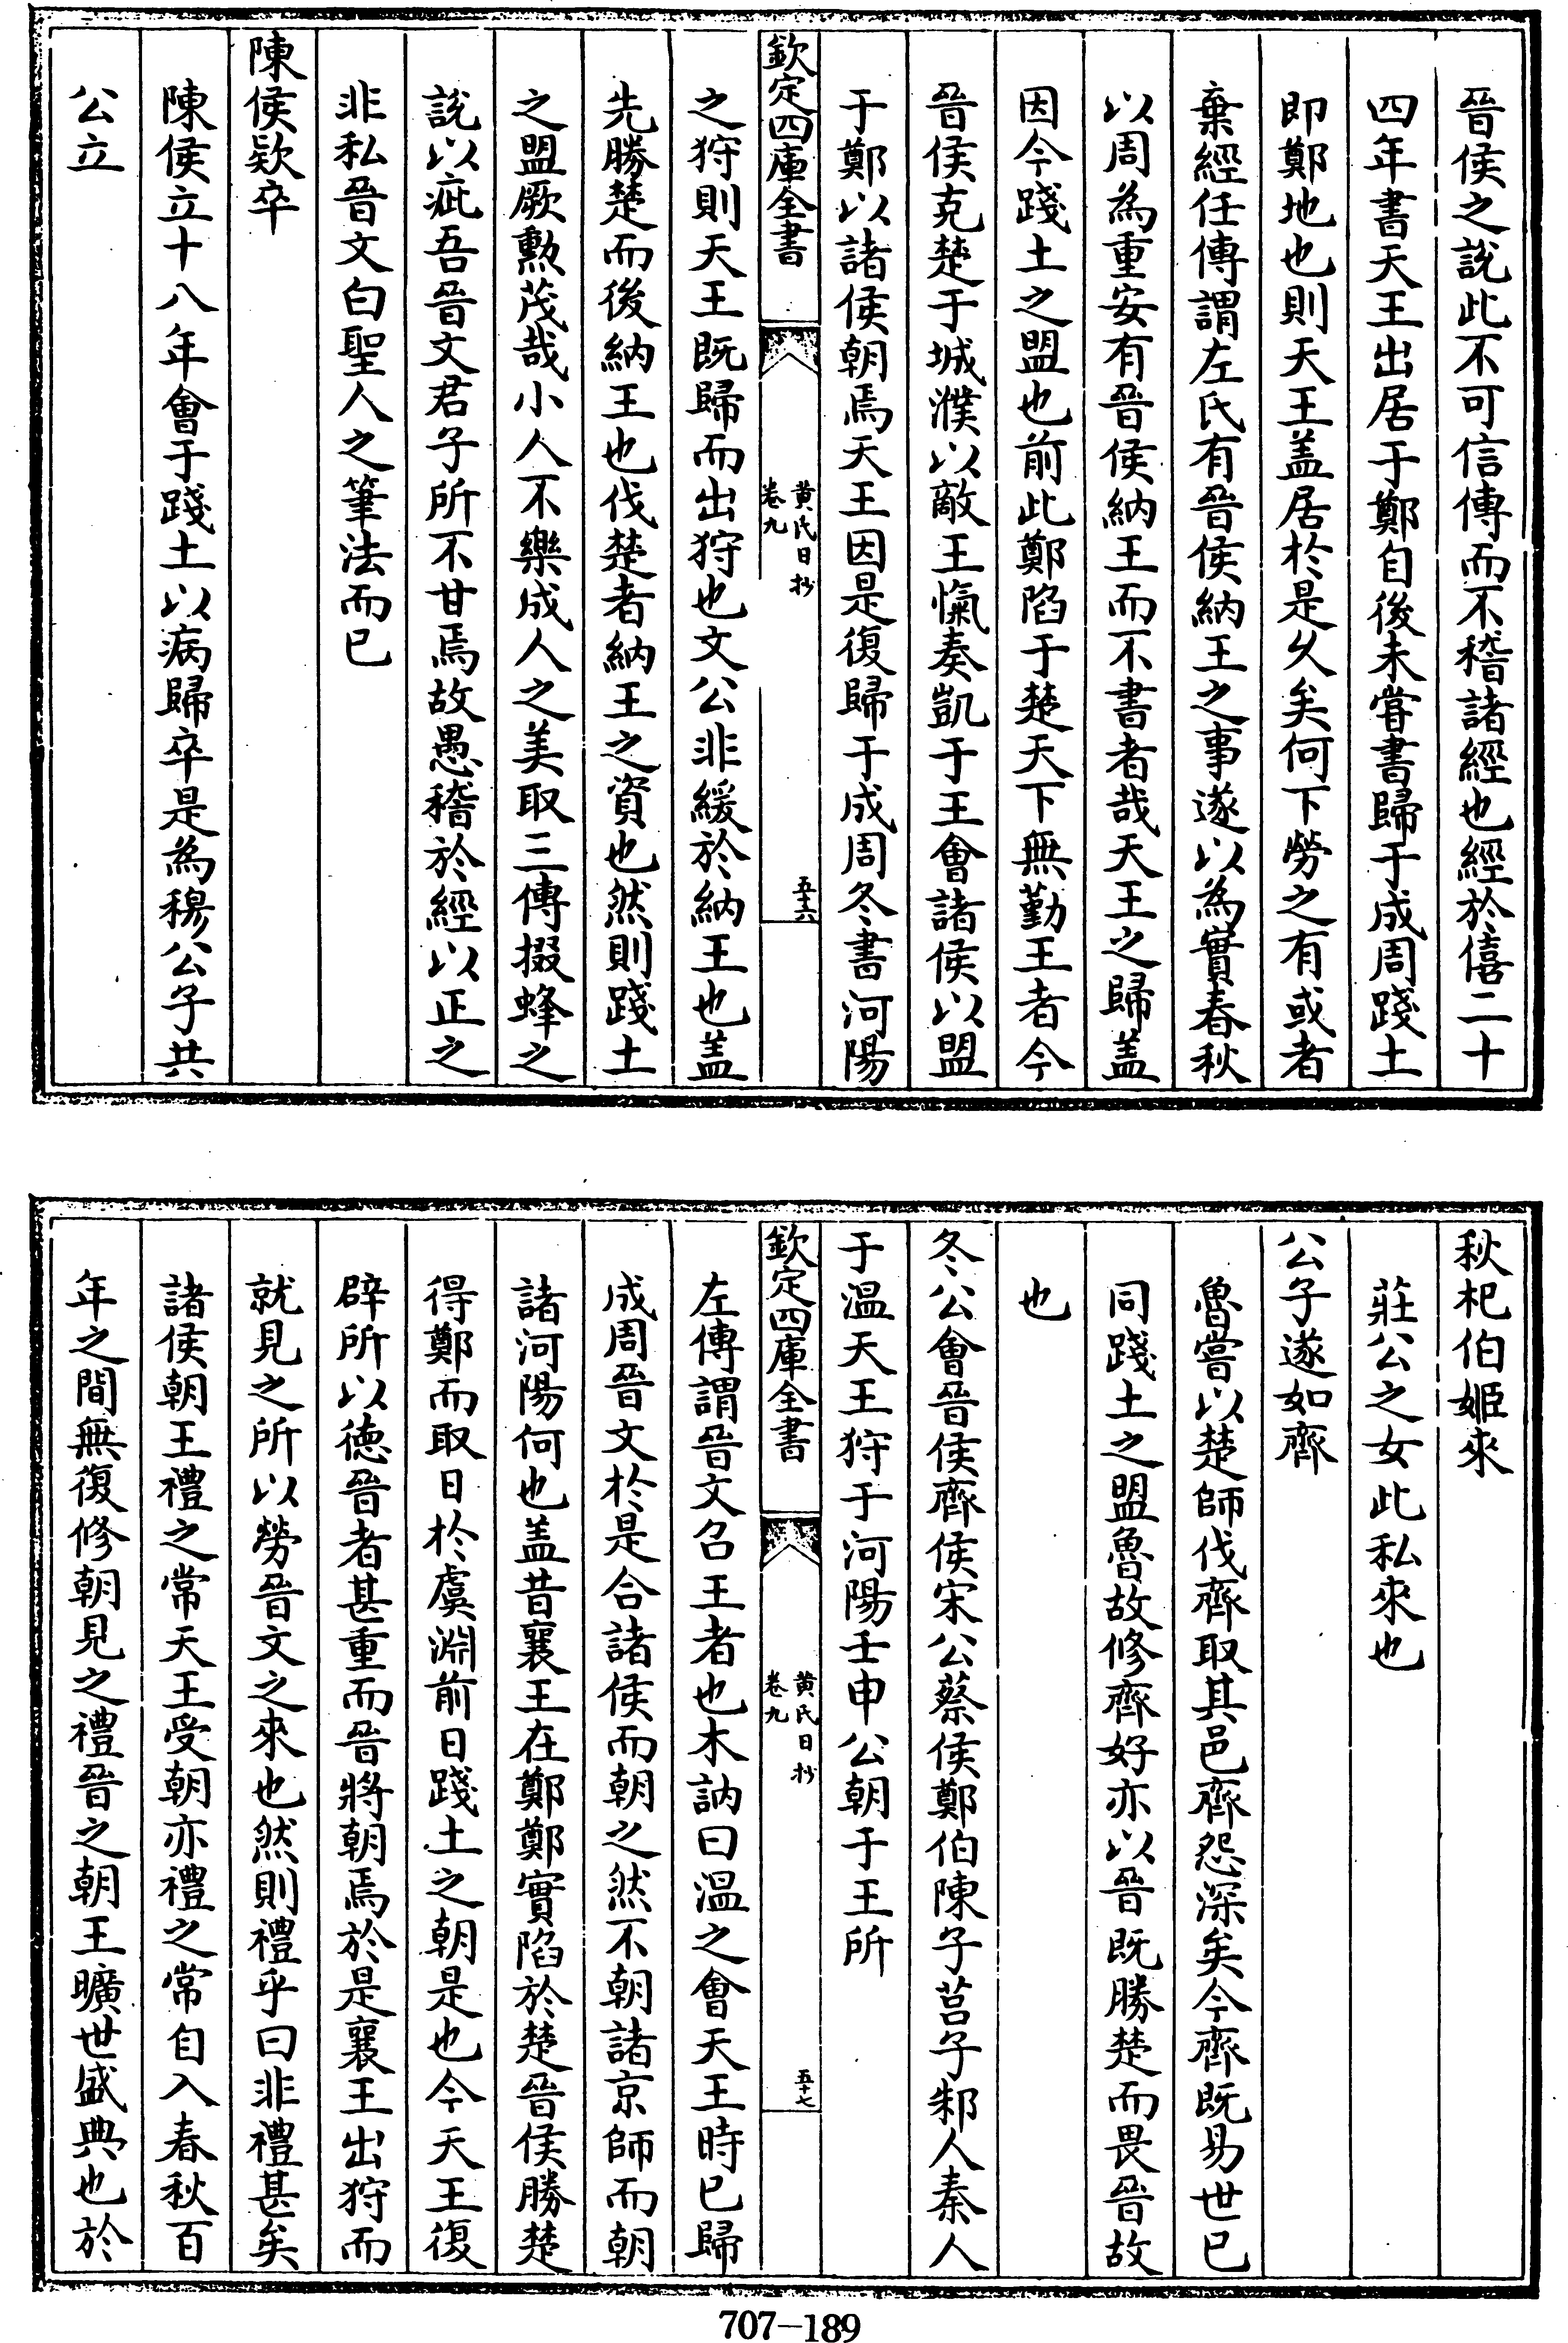 晉侯之說此不可信傳而不稽諸經也經於僖二十
四年書天王出居于鄭自後未甞書歸于成周踐土
即鄭地也則天王盖居於是乆矣何下勞之有或者
棄經任傳謂左氏有晉侯納王之事遂以為實春秋
以周為重安有晉侯納王而不書者哉天王之歸盖
因今踐土之盟也前此鄭陷于楚天下無勤王者今
晉侯克楚于城濮以敵王愾奏凱于王會諸侯以盟
于鄭以諸侯朝焉天王因是復歸于成周冬書河陽
欽定四庫全書
黄氏日抄
卷九
五十六
之狩則天王既歸而出狩也文公非緩於納王也盖
先勝楚而後納王也伐楚者納王之資也然則踐土
之盟厥勲茂哉小人不樂成人之美取三傳掇蜂之
說以疵吾晉文君子所不甘焉故愚稽於經以正之
非私晉文白聖人之筆法而已
陳侯欵卒
陳侯立十八年會于踐土以病歸卒是為穆公子共
公立
秋杞伯姬來
莊公之女此私來也
公子遂如齊
魯嘗以楚師伐齊取其邑齊怨深矣今齊既易世已
同踐土之盟魯故修齊好亦以晉既勝楚而畏晉故
也
冬公會晉侯齊侯宋公蔡侯鄭伯陳子莒子邾人秦人
于温天王狩于河陽壬申公朝于王所
欽定四庫全書
黄氏日抄
卷九
五十七
左傳謂晉文召王者也木訥曰温之會天王時已歸
成周晉文於是合諸侯而朝之然不朝諸京師而朝
諸河陽何也盖昔襄王在鄭鄭實陷於楚晉侯勝楚
得鄭而取日於虞淵前日踐土之朝是也今天王復
辟所以徳晉者甚重而晉將朝焉於是襄王出狩而
就見之所以勞晉文之來也然則禮乎曰非禮甚矣
諸侯朝王禮之常天王受朝亦禮之常自入春秋百
年之間無復修朝見之禮晉之朝王曠世盛典也於
707—189